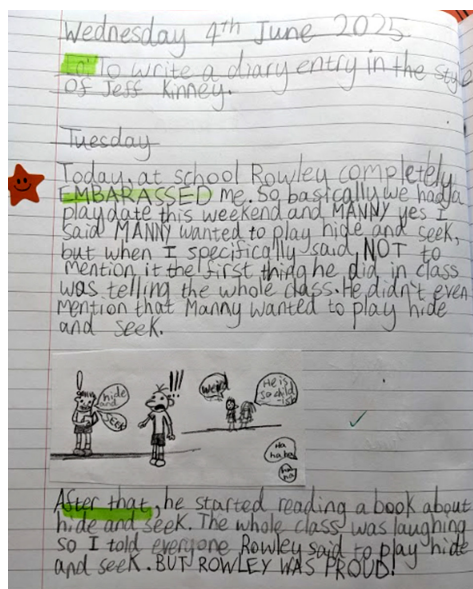 Wednesday 4th June 2025
Lo: To write a diary entry in the style
of Jeff Kinney.
Tuesday
Today, at school Rowley completely
EMBARASSED me. So basically we had a
playdate this weekend and MANNY yes I
said MANNY wanted to play hide and seek,
but when I specifically said NOT to
mention it the first thing he did in class
was telling the whole class. He didn't even
mention that Manny wanted to play hide
and seek.
!
hide
and
seek
!!!
weird
He is
so child
-ish
Ha
haha
ha
ha
After that, he started reading a book about
hide and seek. The whole class was laughing
so I told everyone Rowley said to play hide
and seek. BUT ROWLEY WAS PROUD!